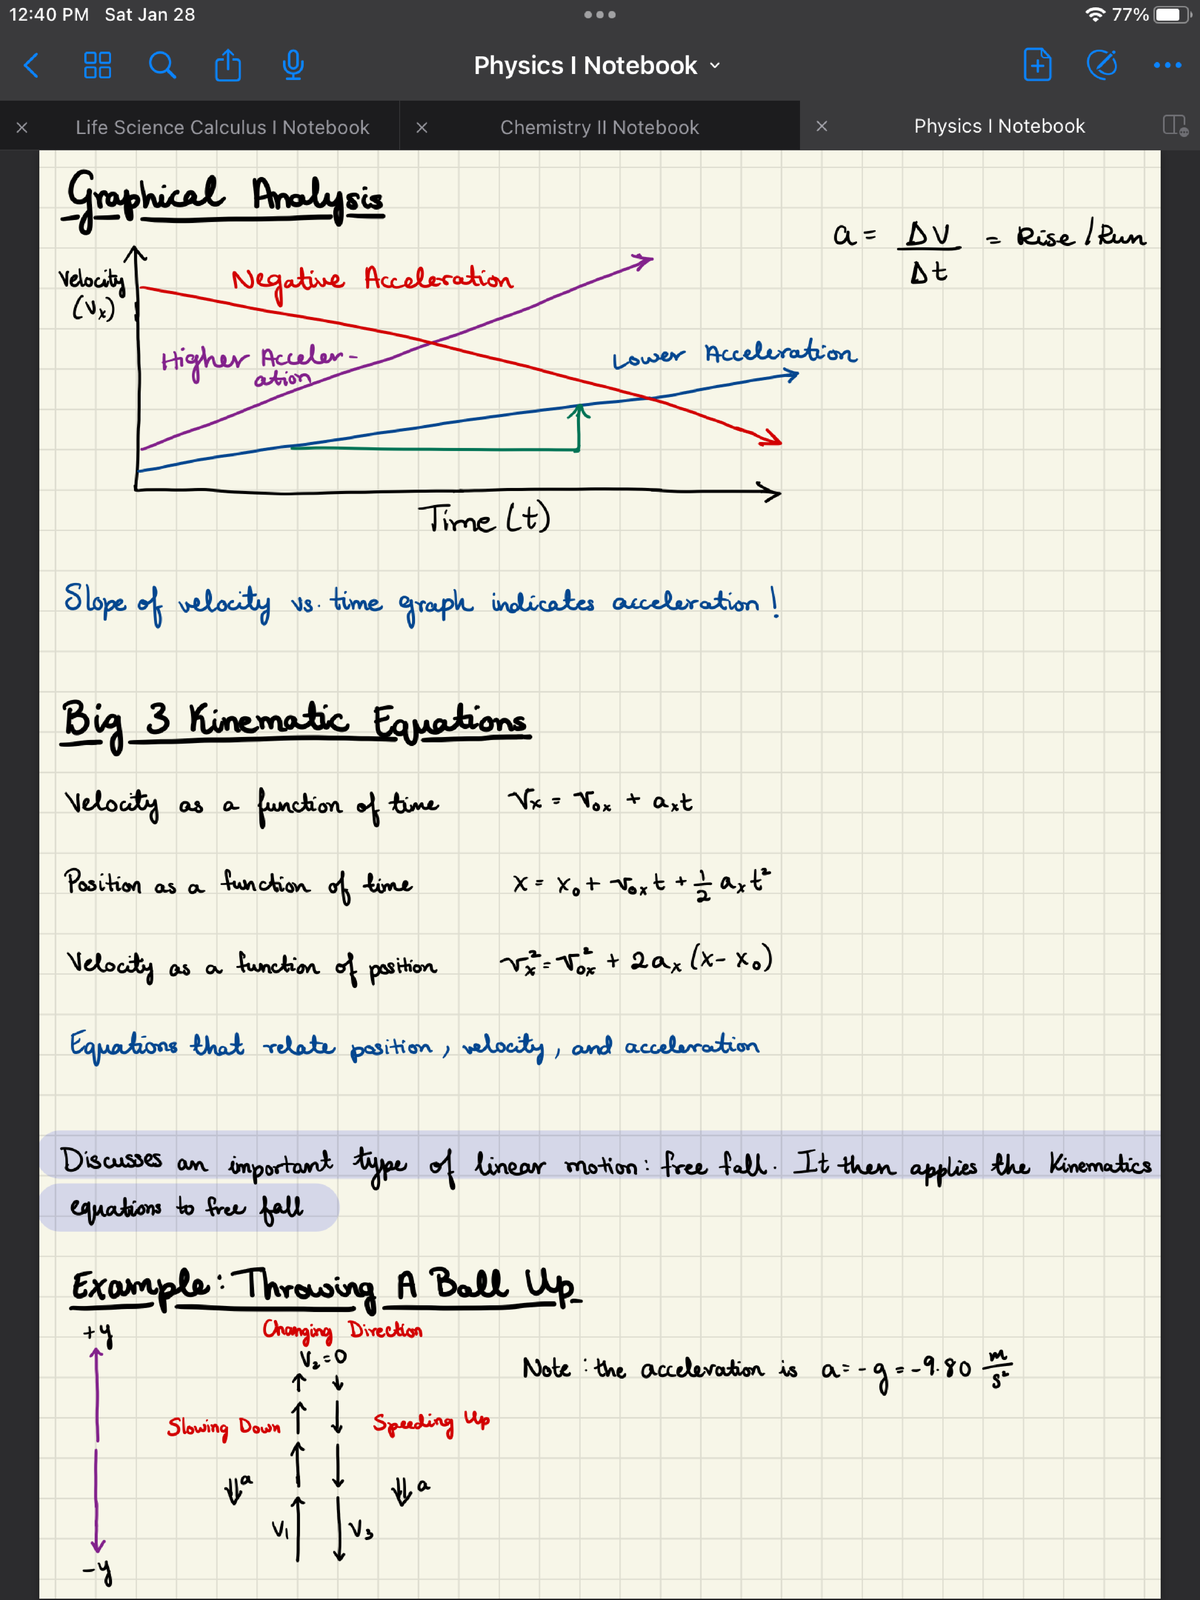 12:40 PM Sat Jan 28
77%
Physics I Notebook
Life Science Calculus I Notebook
Chemistry II Notebook
Physics I Notebook
Graphical Analysis
a = ΔV / Δt = Rise / Run
Velocity
(Vx)
Negative Acceleration
Higher Acceler-
ation
Lower Acceleration
Time (t)
Slope of velocity vs. time graph indicates acceleration!
Big 3 Kinematic Equations
Velocity as a function of time Vx = Vox + axt
Position as a function of time x = xo + Voxt + 1/2 axt²
Velocity as a function of position Vx² = Vox² + 2ax (x - xo)
Equations that relate position, velocity, and acceleration
Discusses an important type of linear motion: free fall. It then applies the Kinematics
equations to free fall
Example: Throwing A Ball Up
+y
Changing Direction
V₂ = 0
Note: the acceleration is a = -g = -9.80 m/s²
Slowing Down
Speeding Up
a
a
V₁
V₃
-y